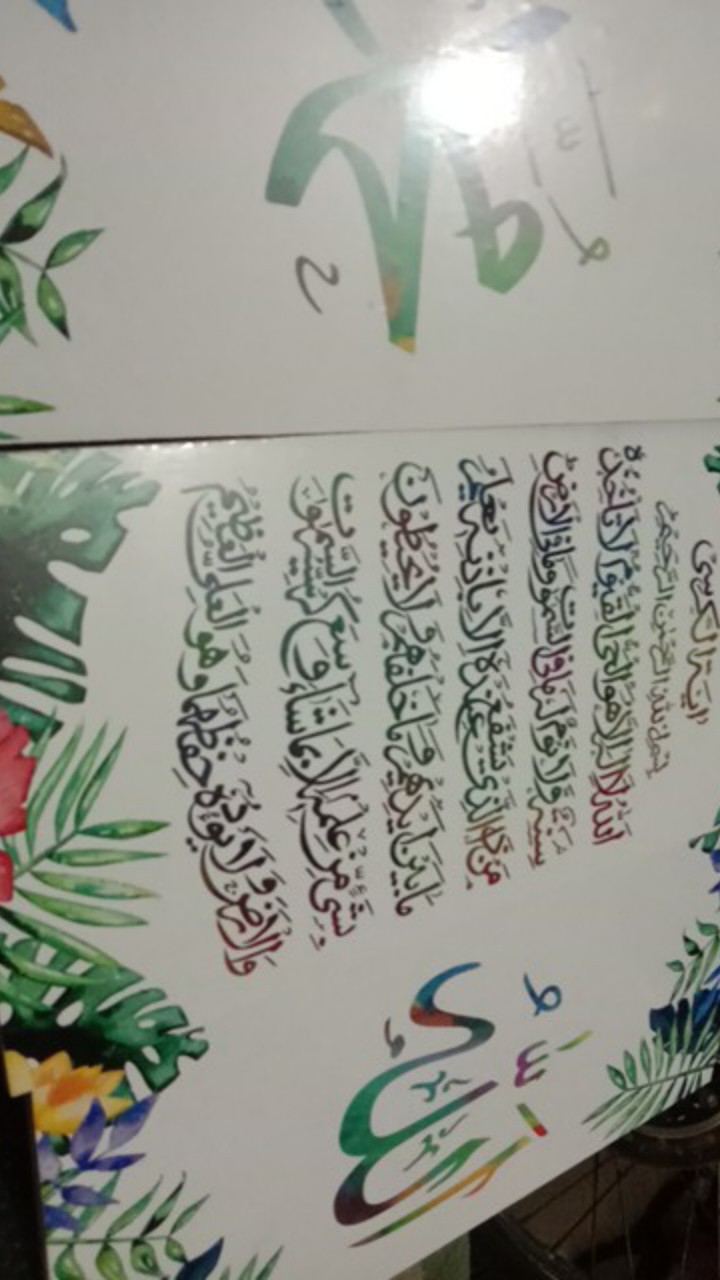 اٰيَةُ الْكُرْسِيِّ
بِسْمِ اللهِ الرَّحْمٰنِ الرَّحِيْمِ
اَللهُ لَآ اِلٰهَ اِلَّا هُوَ الْحَيُّ الْقَيُّوْمُ لَا تَأْخُذُهٗ
سِنَةٌ وَّلَا نَوْمٌ لَهٗ مَا فِي السَّمٰوٰتِ وَمَا فِي الْاَرْضِ
مَنْ ذَا الَّذِيْ يَشْفَعُ عِنْدَهٗٓ اِلَّا بِاِذْنِهٖ يَعْلَمُ
مَا بَيْنَ اَيْدِيْهِمْ وَمَا خَلْفَهُمْ وَلَا يُحِيْطُوْنَ
بِشَيْءٍ مِّنْ عِلْمِهٖٓ اِلَّا بِمَا شَآءَ وَسِعَ كُرْسِيُّهُ السَّمٰوٰتِ
وَالْاَرْضَ وَلَا يَئُوْدُهٗ حِفْظُهُمَا وَهُوَ الْعَلِيُّ الْعَظِيْمُ